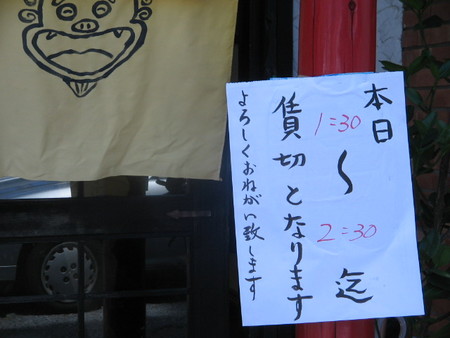 本日
1:30
〜
2:30
迄
賃切となります
よろしくおねがい致します